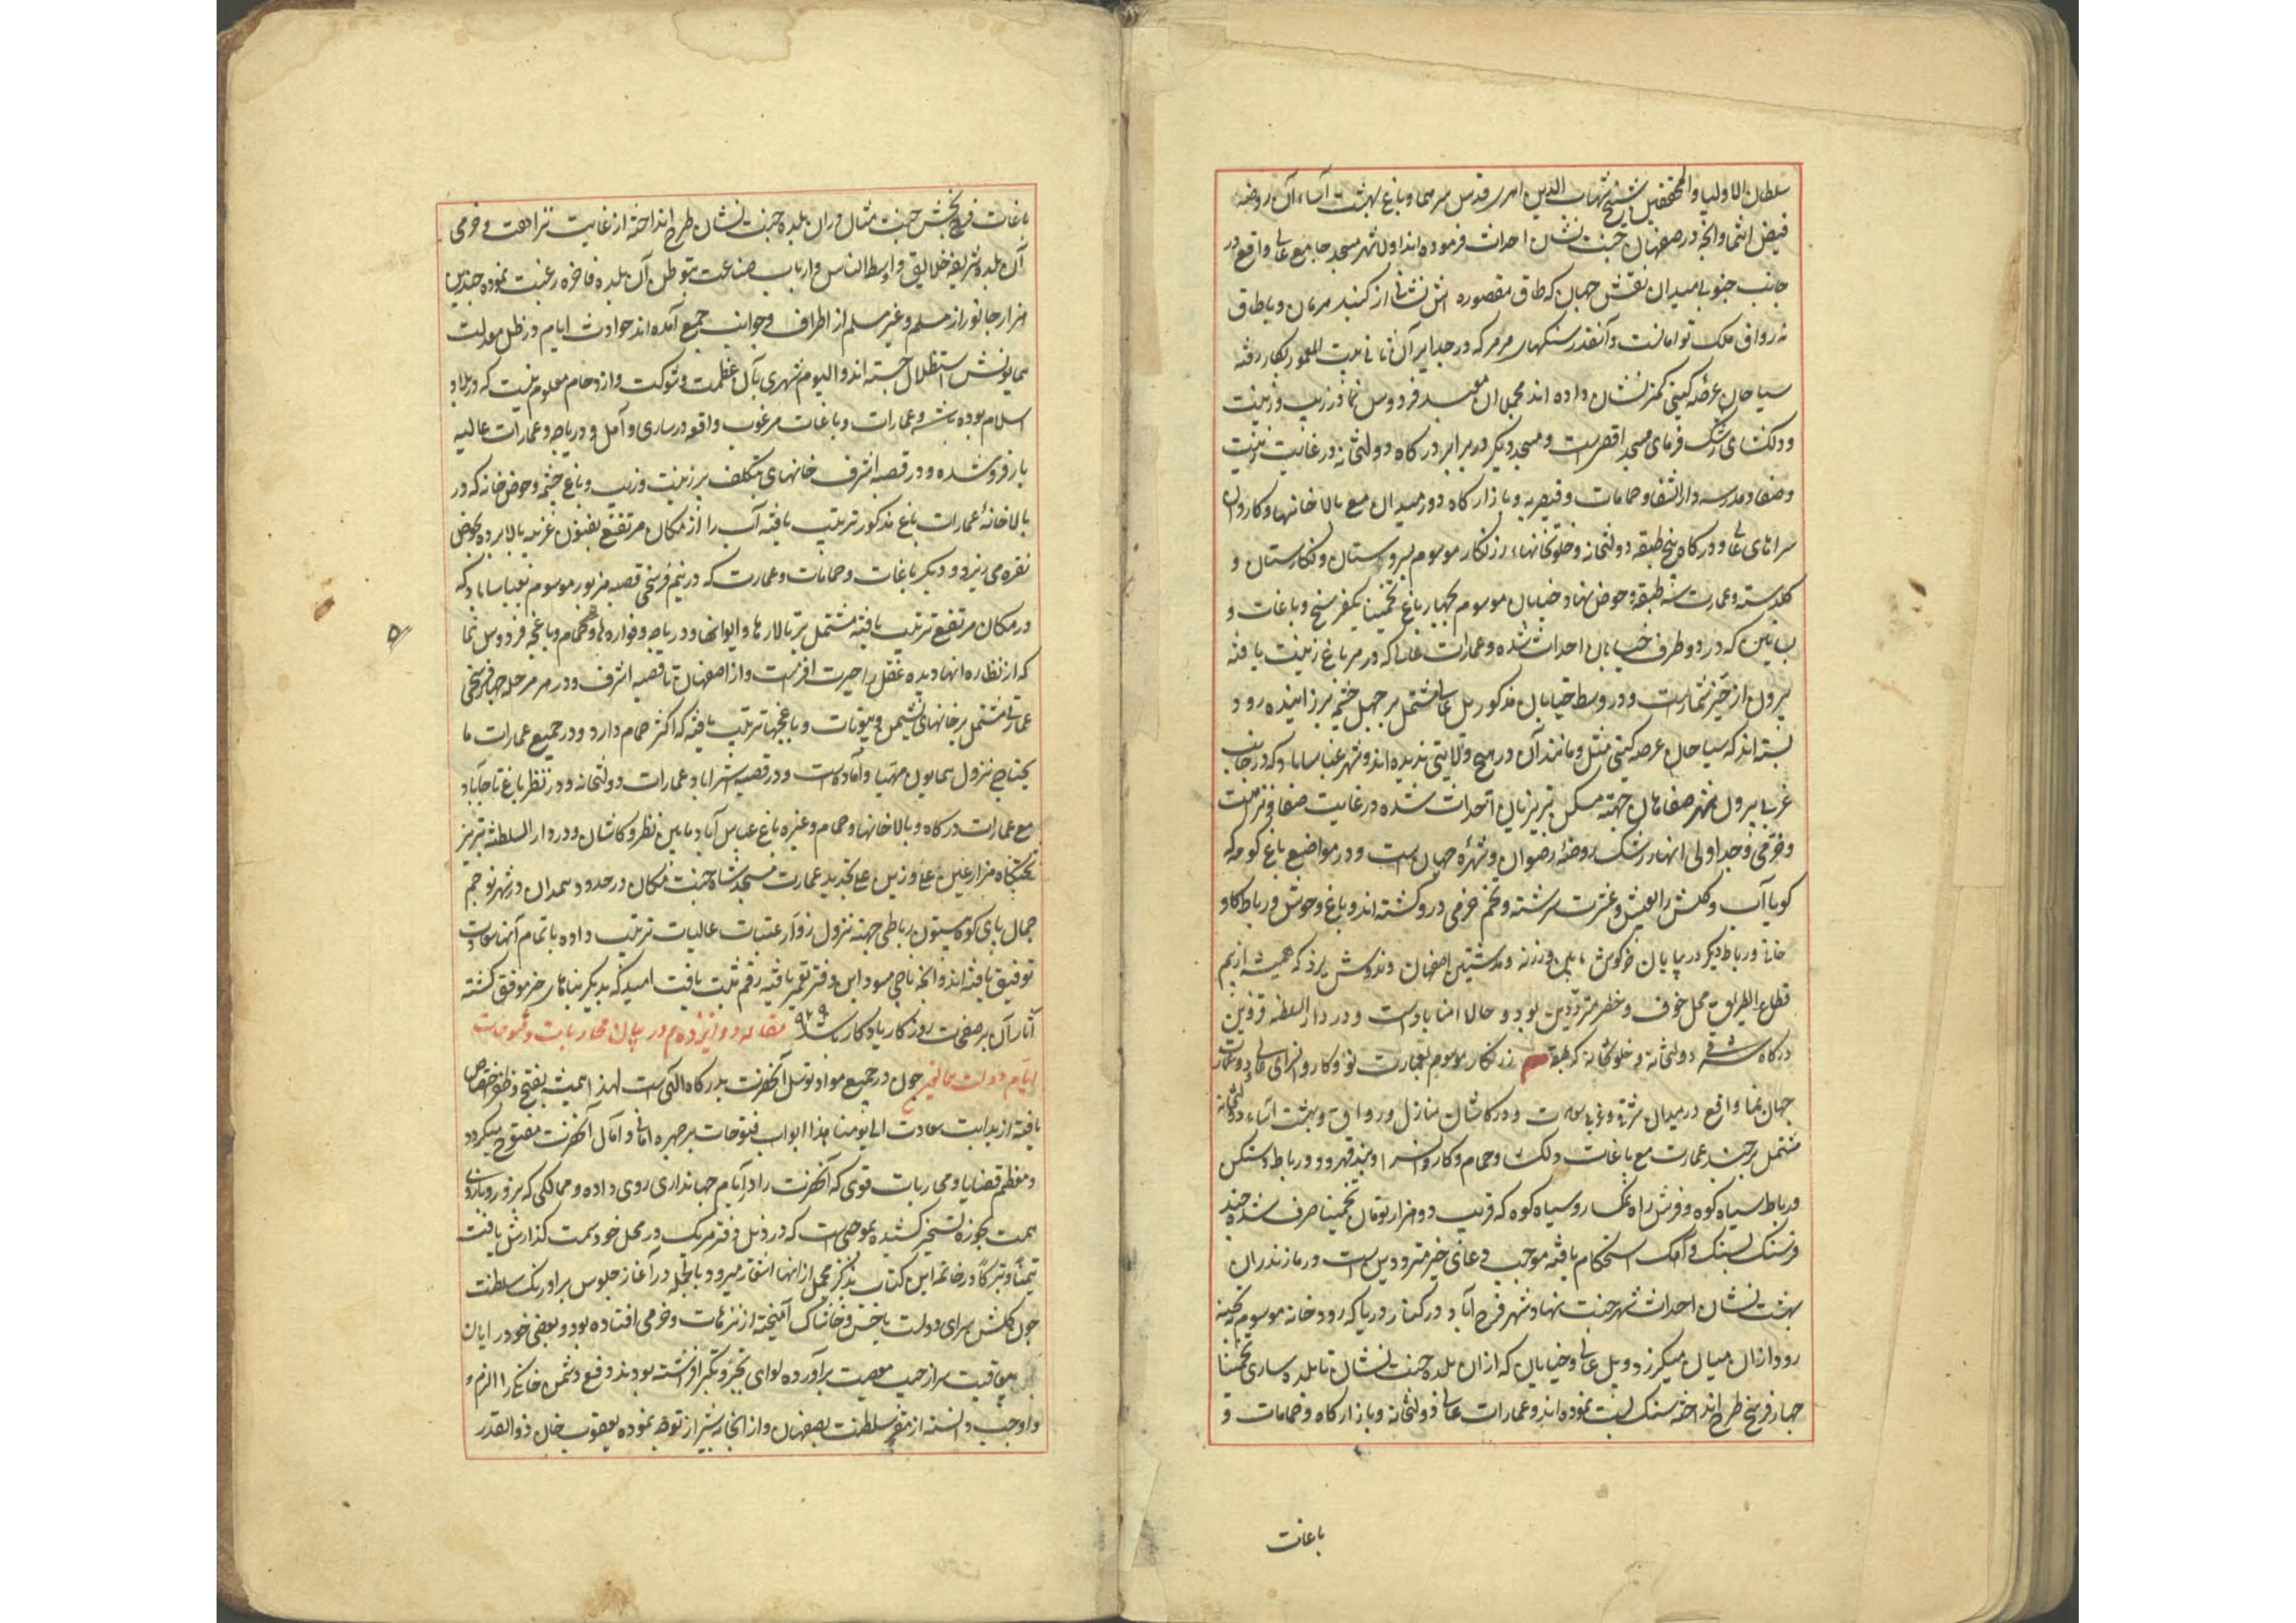 سلطان الاولیا والمحققین شیخ شهاب الدین اهری قدس سرهما و باغ بهشت آساء آن روضه
فیض انتما وانچه در صفهان جنت نشان احداث فرموده اند اول شهر مسجد جامع عالی واقع در
جانب جنوبی میدان نقش جهان که طاق مقصوره اش نشانی از کنبد هرمان و با طاق
نه رواق فلک توامانست و آنقدر سنکهای مرمر که در جدایر آن ثانی بیت المعمور بکار رفته
سیاحان عرصه کیتی کمتر نشان داده اند مجملا ان معبد فردوس نما در زیب و زینت
و دلکشای رشک فرمای مسجد اقصی است و مسجد دیکر در برابر درکاه دولتخانه در غایت زینت
و صفا و مدرسه و دار الشفا و حمامات و قیصریه و بازارکاه دور میدان مع بالاخانها و کاروان
سراهای عالی و درکاه پنج طبقه دولتخانه و خلوتخانهاء زرنکار موسوم بسروستان و نکارستان و
کلدسته و عمارت سه طبقه و حوض نها و خیابان موسوم بچهارباغ تخمینا یکفرسخ و باغات و
بساتین که در دو طرف خیابان احداث شده و عمارات عالیه که در هر باغ زینت یافته
بیرون از حیز شمارست و در وسط خیابان مذکور پل عالی مشتمل بر چهل چشمه بر زاینده رود
بسته اند که سیاحان عرصه کیتی مثل و مانند آن در هیچ ولایتی ندیده اند و شهر عباساباد که در جانب
غربی بیرون شهر صفاهان جهته مسکن تبریزیان احداث شده در غایت صفا و نزهت
و خرمی و جداول انهار رشک روضه رضوان و شهره جهان است و در مواضع باغ کومه که
کویا آب و کلش را بعیش و عشرت سرشته و تخم خرمی در و کشته اند و باغ وحوش و رباط کاو
خانی و رباط دیکر در بیابان خرکوش مابین ورزنه و دشتین اصفهان و ندوشن یزد که همیشه از بیم
قطاع الطریق محل خوف و خطر مترددین بود و حالا امناباد است و در دار السلطنه قزوین
درکاه شرقی دولتخانه و خلوتخانه زرنکار موسوم بعمارت نو و کاروانسرای عالی و دو عمارت
جهان نما واقع در میدان شرقی و غربی و در کاشان منازل و رواق و بهشت آساء دولتخانه
مشتمل بر چند عمارت مع باغات دلکش و حمام و کاروانسرا و بند قهرود و رباط و سنکبن
و رباط سیاه کوه و فرش راه نمکسار و سیاه کوه که قریب دو هزار تومان تخمینا صرف شده چند
فرسنک بسنک و آهک استحکام یافته موجب دعای خیر مترددین است و در مازندران
بهشت نشان احداث شهر جنت بنهاد شهر فرح آباد در کنار دریا که رودخانه موسوم به تجینه
رود از ان میان میکرزد و پل عالی و خیابان که از ان بلده جنت نشان تا بلده ساری تخمینا
چهار فرسخ طرح انداخته سنک بست نموده اند و عمارات عالی دولتخانه و بازارکاه و حمامات و
باغات
باغات فرح بخش جنت مثال در ان بلده جنت نشان طرح انداخته از غایت نزاهت و خرمی
آن بلده شریفه خلایق و اوسط الناس و ارباب صناعت بتوطن آن بلده فاخره رغبت نموده چندین
هزار جانور از مسلم و غیر مسلم از اطراف و جوانب جمع آمده اند حوادث ایام در ظل معدلت
همایونش استظلال جسته اند و الیوم شهری بآن عظمت و شوکت و ازدحام معلوم نیست که در بلاد
اسلام بوده باشد و عمارات و باغات مرغوب واقعه در ساری و آمل و دریاچه و عمارات عالیه
بارفروش ده و در قصبه اشرف خانهای بتکلف بر زینت و زیب و باغ چشمه و حوض خانه که در
بالاخانه عمارات باغ مذکور ترتیب یافته آب را از مکان مرتفع بفنون غریبه بالا برده بحوض
نقره می ریزد و دیکر باغات و حمامات و عمارت که در نیم فرسخی قصبه مزبور موسوم بعباساباد که
در مکان مرتفع ترتیب یافته مشتمل بر تالارها و ایوانها و دریاچه و فواره ها و حمام و باغچه فردوس نما
که از نظاره انها دیده عقل را حیرت افزاست و از اصفهان تا قصبه اشرف و در هر مرحله چهار فرسخی
عمارتی مشتمل بر خانهای نشیمن و بیوتات و باغچها ترتیب یافته که اکثر حمام دارد و در جمیع عمارات ما
یحتاج نزول همایون مهیا و آماده است و در قصبه اشتراباد عمارات دولتخانه و در نظر باغ تاجآباد
مع عمارات درکاه و بالاخانها و حمام و غیره باغ عباس آباد مابین نظر و کاشان و در دار السلطنه تبریز
تختکاه هزار علی علی و زین علی تجدید عمارت مسجد شاه جنت مکان در حدود همدان و در شهر نو چم
جمال پای کوه بیستون رباطی جهته نزول زوار عتبات عالیات ترتیب داده باتمام آنها سعادت
توفیق یافته اند و انچه تا حین مسود این دفتر تعمیر یافته رقم ثبت یافت امید که بدیکر بناهای خیر موفق کشته
آثار آن بر صفحات روزکار یادکار باشد ۹۲۹ مقاله دوانزدهم در بیان محاربات و فتوحات
ایام دولت همایون چون در جمیع مواد توسل آنحضرت بدرکاه الهی است لهذا همیشه بفتح و ظفر اختصاص
یافته از بدایت سعادت الی یومنا هذا ابواب فتوحات بر چهره امانی و آمال آنحضرت مفتوح میکردد
و معظم قضایا و محاربات قوی که آنحضرت را در ایام جهانداری روی داده و ممالکی که بزور و بازوی
همت بحوزه تسخیر کشیده بموجبی است که در ذیل دفتر هریک در محل خود سمت کذارش یافت
تیمنا و تبرکا در خاتمه این کتاب بذکر مجمل از انها اشعار میرود بالجمله در آغاز جلوس بر اورنک سلطنت
چون کلشن سرای دولت باخس و خاشاک آمیخته از نزهات و خرمی افتاده بود و بعضی خودرایان
بیعاقبت سر از جیب معصیت برآورده لوای تجبر و تکبر افراشته بودند دفع دشمن خانکی را الزم و
و اوجب دانسته از مقر سلطنت بصفهان و از انجا بشیراز توجه نموده یعقوب خان ذوالقدر